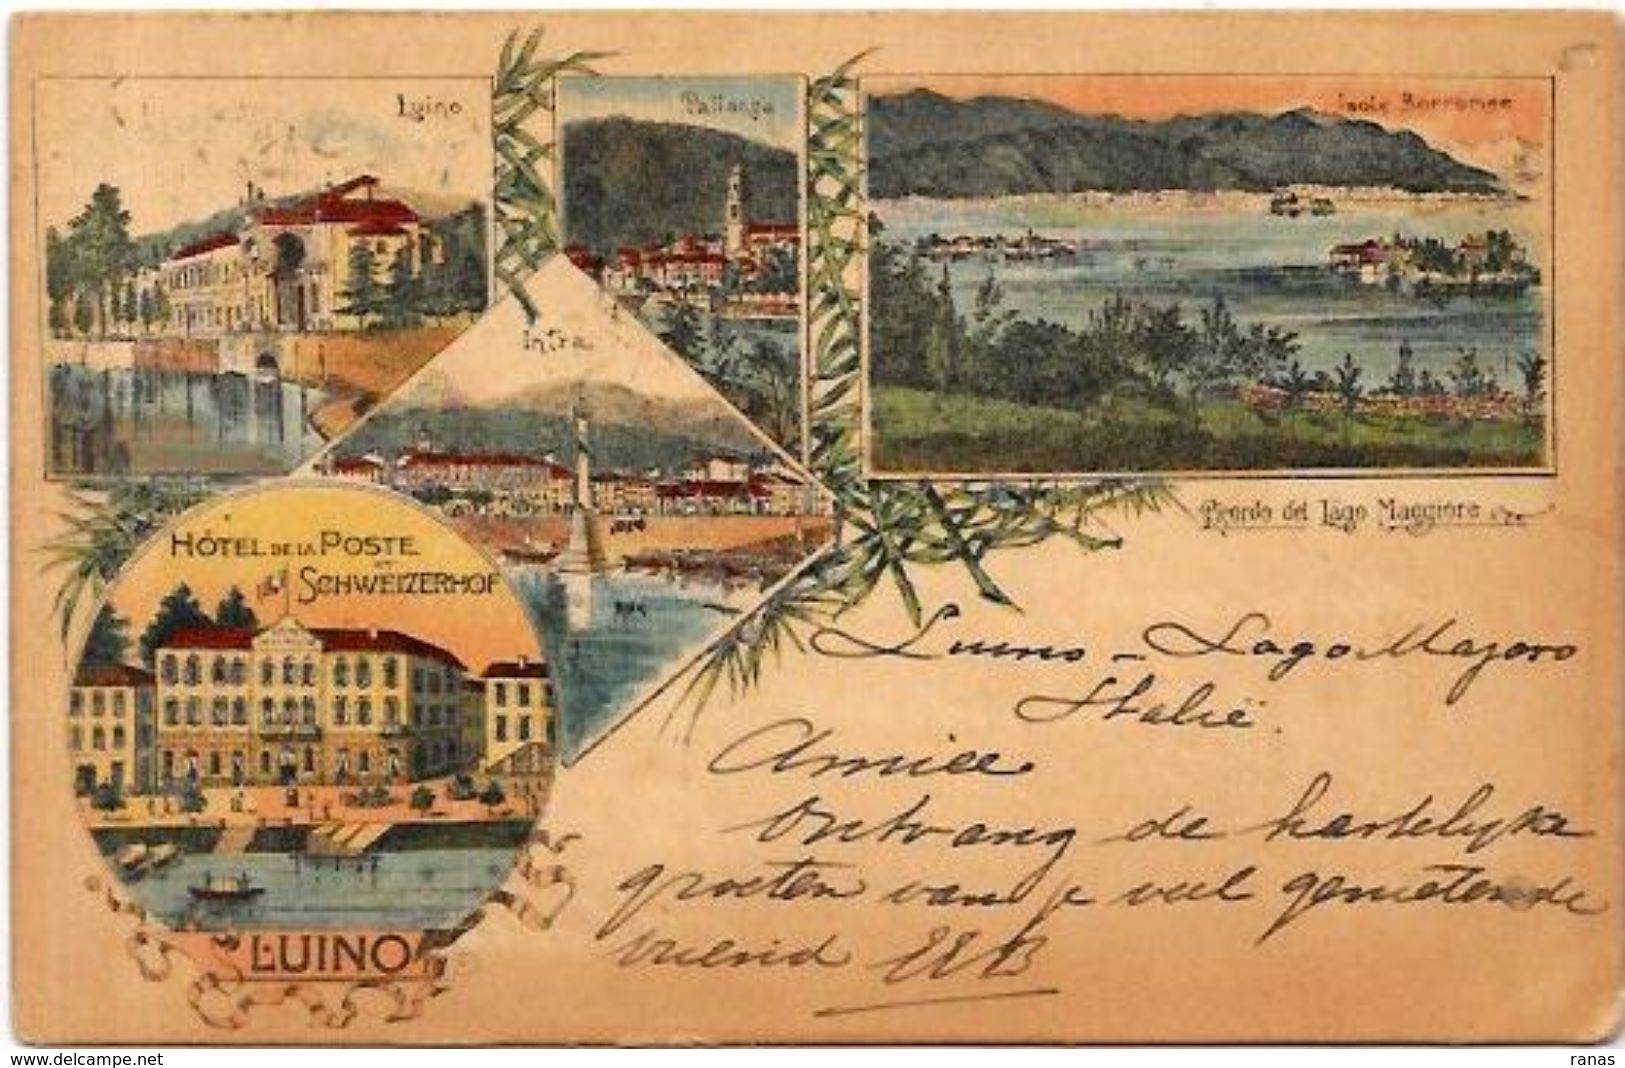 Luino
Pallanza
Isole Borromee
Intra
Ricordo del Lago Maggiore
HÔTEL DE LA POSTE
ET
SCHWEIZERHOF
LUINO
Luino - Lago Majoro
Italië.
Amice
Ontvang de hartelyke
groeten van je veel genietende
vriend
delcampe.net
ranas